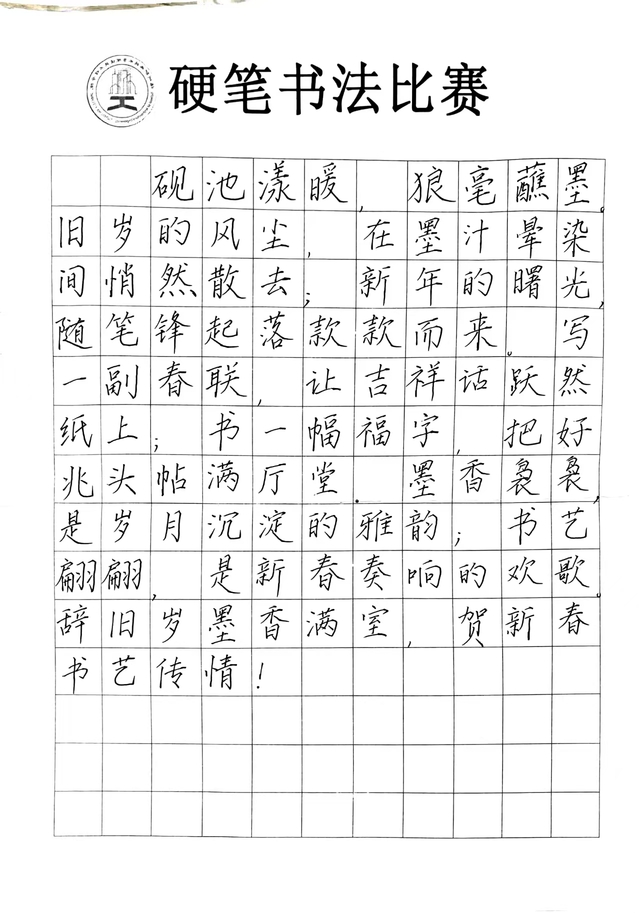 硬笔书法比赛
砚池漾暖，狼毫蘸墨。
旧岁的风尘，在墨汁晕染
间悄然散去；新年的曙光，
随笔锋起落款款而来。写
一副春联，让吉祥话跃然
纸上；书一幅福字，把好
兆头帖满厅堂．墨香袅袅，
是岁月沉淀的雅韵；书艺
翩翩，是新春奏响的欢歌。
辞旧岁墨香满室，贺新春
书艺传情！